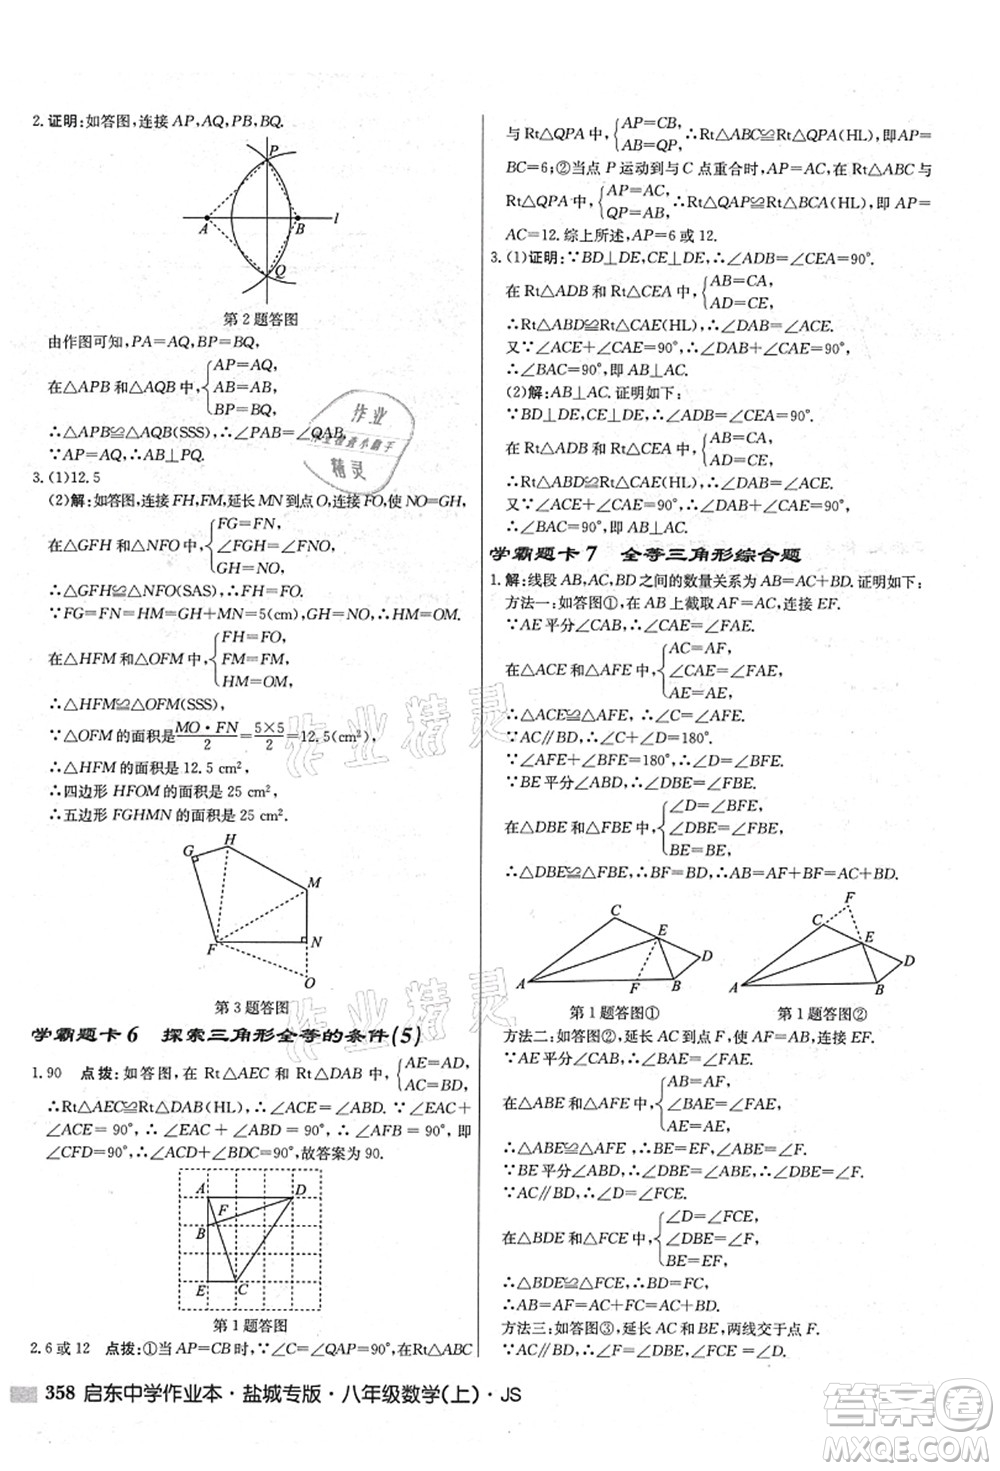 2.证明:如答图,连接 AP,AQ,PB,BQ.
P
A
B
l
Q
第2题答图
由作图可知,PA=AQ,BP=BQ,
在△APB和△AQB中,{AP=AQ,
AB=AB,
BP=BQ,
∴△APB≌△AQB(SSS),∴∠PAB=∠QAB.
∵AP=AQ,∴AB⊥PQ.
3.(1)12.5
(2)解:如答图,连接FH,FM,延长MN到点O,连接FO,使NO=GH,
在△GFH和△NFO中,{FG=FN,
∠G=∠FNO,
GH=NO,
∴△GFH≌△NFO(SAS),∴FH=FO.
∵FG=FN=HM=GH+MN=5(cm),∴HM=OM.
在△HFM和△OFM中,{FH=FO,
FM=FM,
HM=OM,
∴△HFM≌△OFM(SSS).
∵△OFM的面积是MO·FN/2=5×5/2=12.5(cm²),
∴△HFM的面积是12.5 cm²,
∴四边形HFOM的面积是25 cm²,
∴五边形FGHMN的面积是25 cm².
H
G
M
F
N
O
第3题答图
学霸题卡6 探索三角形全等的条件(5)
1.90 点拨:如答图,在Rt△AEC和Rt△DAB中,{AE=AD,
AC=BD,
∴Rt△AEC≌Rt△DAB(HL),∴∠EAC=∠ADB.∵∠EAC+
∠CAD=90°,∴∠ADB+∠CAD=90°,∴∠AFD=90°,即
∠CFD=90°,∴∠ACD+∠BDC=90°,故答案为90.
A
F
D
B
E
C
第1题答图
2.6或12 点拨:①当AP=CB时,∵∠C=∠QAP=90°,在Rt△ABC
与Rt△QPA中,{AP=CB,
AB=QP,
∴Rt△ABC≌Rt△QPA(HL),即AP=
BC=6;②当点P运动到与C点重合时,AP=AC,在Rt△ABC与
Rt△QPA中,{AP=AC,
QP=AB,
∴Rt△QAP≌Rt△BCA(HL),即AP=
AC=12.综上所述,AP=6或12.
3.(1)证明:∵BD⊥DE,CE⊥DE,∴∠ADB=∠CEA=90°.
在Rt△ADB和Rt△CEA中,{AB=CA,
AD=CE,
∴Rt△ABD≌Rt△CAE(HL),∴∠DAB=∠ACE.
又∵∠CAE+∠ACE=90°,∴∠DAB+∠CAE=90°,
∴∠BAC=90°,即AB⊥AC.
(2)解:AB⊥AC.证明如下:
∵BD⊥DE,CE⊥DE,∴∠ADB=∠CEA=90°.
在Rt△ADB和Rt△CEA中,{AB=CA,
AD=CE,
∴Rt△ABD≌Rt△CAE(HL),∴∠DAB=∠ACE.
又∵∠CAE+∠ACE=90°,∴∠CAE+∠DAB=90°,
∴∠BAC=90°,即AB⊥AC.
学霸题卡7 全等三角形综合题
1.解:线段AB,AC,BD之间的数量关系为AB=AC+BD.证明如下:
方法一:如答图①,在AB上截取AF=AC,连接EF.
∵AE平分∠CAB,∴∠CAE=∠FAE.
在△ACE和△AFE中,{AC=AF,
∠CAE=∠FAE,
AE=AE,
∴△ACE≌△AFE(SAS),∴∠C=∠AFE.
∵AC∥BD,∴∠C+∠D=180°.
∵∠AFE+∠BFE=180°,∴∠D=∠BFE.
∵BE平分∠ABD,∴∠DBE=∠FBE.
在△DBE和△FBE中,{∠D=∠BFE,
∠DBE=∠FBE,
BE=BE,
∴△DBE≌△FBE(AAS),∴BF=BD,∴AB=AF+BF=AC+BD.
C
E
D
A
F
B
第1题答图①
F
C
E
D
A
B
第1题答图②
方法二:如答图②,延长AC到点F,使AF=AB,连接EF.
∵AE平分∠CAB,∴∠FAE=∠BAE.
在△ABE和△AFE中,{AB=AF,
∠BAE=∠FAE,
AE=AE,
∴△ABE≌△AFE(SAS),∴∠F=∠ABE,BE=FE.
∵BE平分∠ABD,∴∠ABE=∠DBE,∴∠F=∠DBE.
∵AC∥BD,∴∠D=∠FCE.
在△DBE和△CFE中,{∠D=∠FCE,
∠DBE=∠F,
BE=EF,
∴△DBE≌△CFE(AAS),∴BD=CF.
∵AF=AC+CF,∴AF=AC+BD,∴AB=AC+BD.
方法三:如答图③,延长AC和BE,两线交于点F.
358 启东中学作业本·盐城专版·八年级数学(上)·JS
作业
作业检查小助手
精灵
作业精灵
作业精灵
答案圈
MXQE.COM